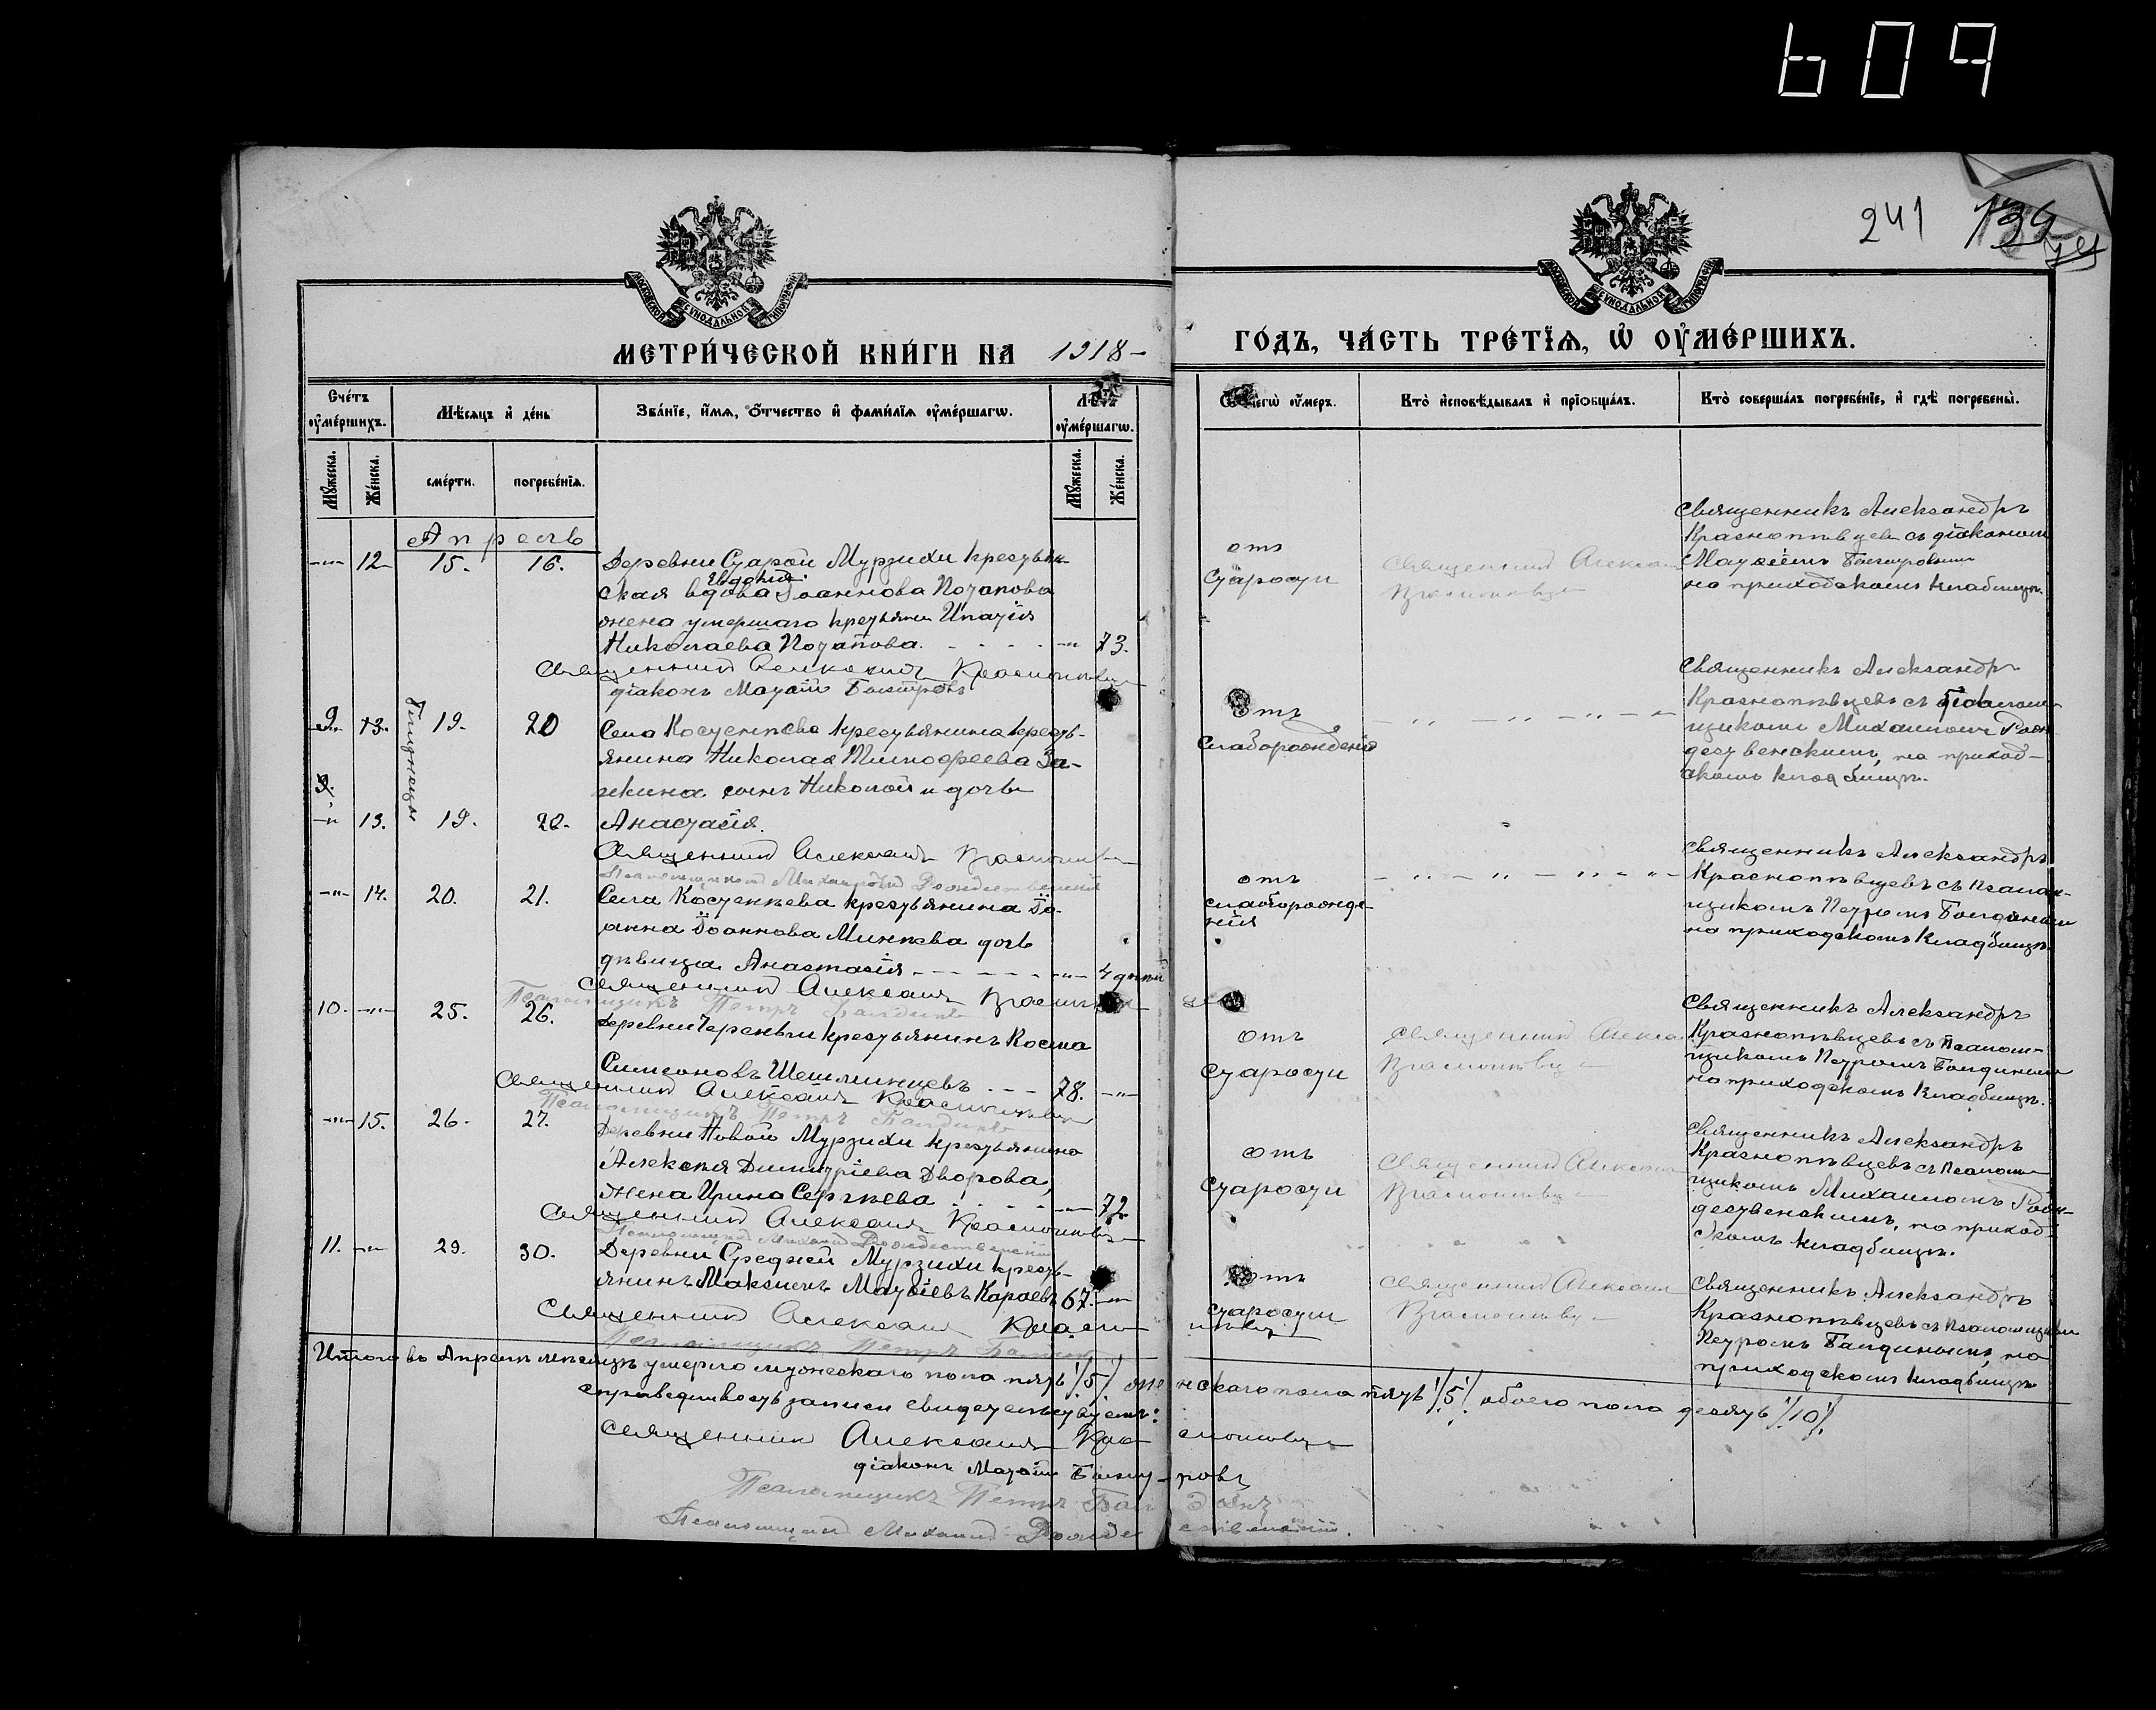 609
241 139
МОСКОВСКОЙ СѴНОДАЛЬНОЙ ТИПОГРАФІИ
МОСКОВСКОЙ СѴНОДАЛЬНОЙ ТИПОГРАФІИ
МЕТРИ́ЧЕСКОЙ КНИ́ГИ НА 1918 –
ГО́ДЪ, ЧА́СТЬ ТРЕ́ТЇѦ, Ѽ ОУ҆МЕ́РШИХЪ.
Сче́тъ оу҆ме́ршихъ.
Мѣ́сяцъ и҆ де́нь
Зва́нїе, и҆́мя, о҆́тчество и҆ фами́лїя оу҆ме́ршагѡ.
Лѣта оу҆ме́ршагѡ.
Ѿ чегѡ̀ оу҆́меръ.
Кто̀ и҆сповѣ́дывалъ и҆ прїѻбща́лъ.
Кто̀ соверша́лъ погребе́нїе, и҆ гдѣ̀ погребены̀.
Му́жеска. Же́нска. сме́рти. погребе́нїя. Му́жеска. Же́нска.
Апрель
–"– 12 15. 16. Деревни Старой Мурзихи крестьян-
ская вдова Евдокия Іоаннова Потапова
жена умершаго крестьян. Ипатія
Николаева Потапова. – " 73.
Священник Александр Краснопевцев
діаконъ Матвій Быстровъ
отъ
старости
Священник Александр
Краснопевцев
Священникъ Александръ
Краснопѣвцевъ съ діакономъ
Матвіемъ Быстровымъ
на приходскомъ кладбищѣ.
9. 13. Близнецы 19. 20 Села Костенеева крестьянина кресть-
янина Николая Тимофеева За-
жина сынъ Николай и дочь
9.
–"– 13. 19. 20. Анастасія.
Священник Александр Краснопевцев
Псаломщик Михаил Рождественский
Отъ
слаборожденія
– " – " – " – "
Священникъ Александръ
Краснопѣвцевъ съ псалом-
щикомъ Михаиломъ Рож-
дественскимъ, на приход-
скомъ кладбищѣ.
–"– 14. 20. 21. Села Костенеева крестьянина Іо-
анна Іоаннова Минеева дочь
дѣвица Анастасія – – – – – –"– 4 дней
Священник Александр Краснопевцев
Псаломщикъ Петръ Балдинъ
отъ
слаборожде-
нія
– " – " – " – "
Священникъ Александръ
Краснопѣвцевъ съ псалом-
щикомъ Петромъ Балдинымъ
на приходскомъ кладбищѣ.
10. –"– 25. 26. Деревни крестьянинъ Косма
Симеоновъ Шешминцевъ – – – 78. –"–
Священник Александр Краснопевцев
Псаломщикъ Петръ Балдинъ
отъ
старости
Священник Александр
Краснопевцев
Священникъ Александръ
Краснопѣвцевъ съ псалом-
щикомъ Петромъ Балдинымъ
на приходскомъ кладбищѣ.
–"– 15. 26. 27. Деревни Новой Мурзихи крестьянина
Алексѣя Димитріева Дворова,
жена Ирина Сергѣева –"– 72.
Священник Александр Краснопевцев
Псаломщик Михаил Рождественский
отъ
старости
Священник Александр
Краснопевцев
Священникъ Александръ
Краснопѣвцевъ съ псалом-
щикомъ Михаиломъ Рож-
дественскимъ, на приход-
скомъ кладбищѣ.
11. –"– 29. 30. Деревни Средней Мурзихи кресть-
янинъ Максимъ Матвіевъ Караевъ 67. –"–
Священник Александр Краснопевцев
Псаломщикъ Петръ Балдинъ
Отъ
старости
Священник Александр
Краснопевцев
Священникъ Александръ
Краснопѣвцевъ съ псаломщикомъ
Петромъ Балдинымъ, на
приходскомъ кладбищѣ
Итого въ Апрелѣ мѣсяцѣ умерло мужескаго пола пять /5/ женскаго пола пять /5/ обоего пола десять /10/.
справедливость записи свидетельствуемъ:
Священник Александр Краснопевцев
діаконъ Матвій Быстровъ
Псаломщикъ Петръ Балдинъ
Псаломщик Михаил Рождественский.